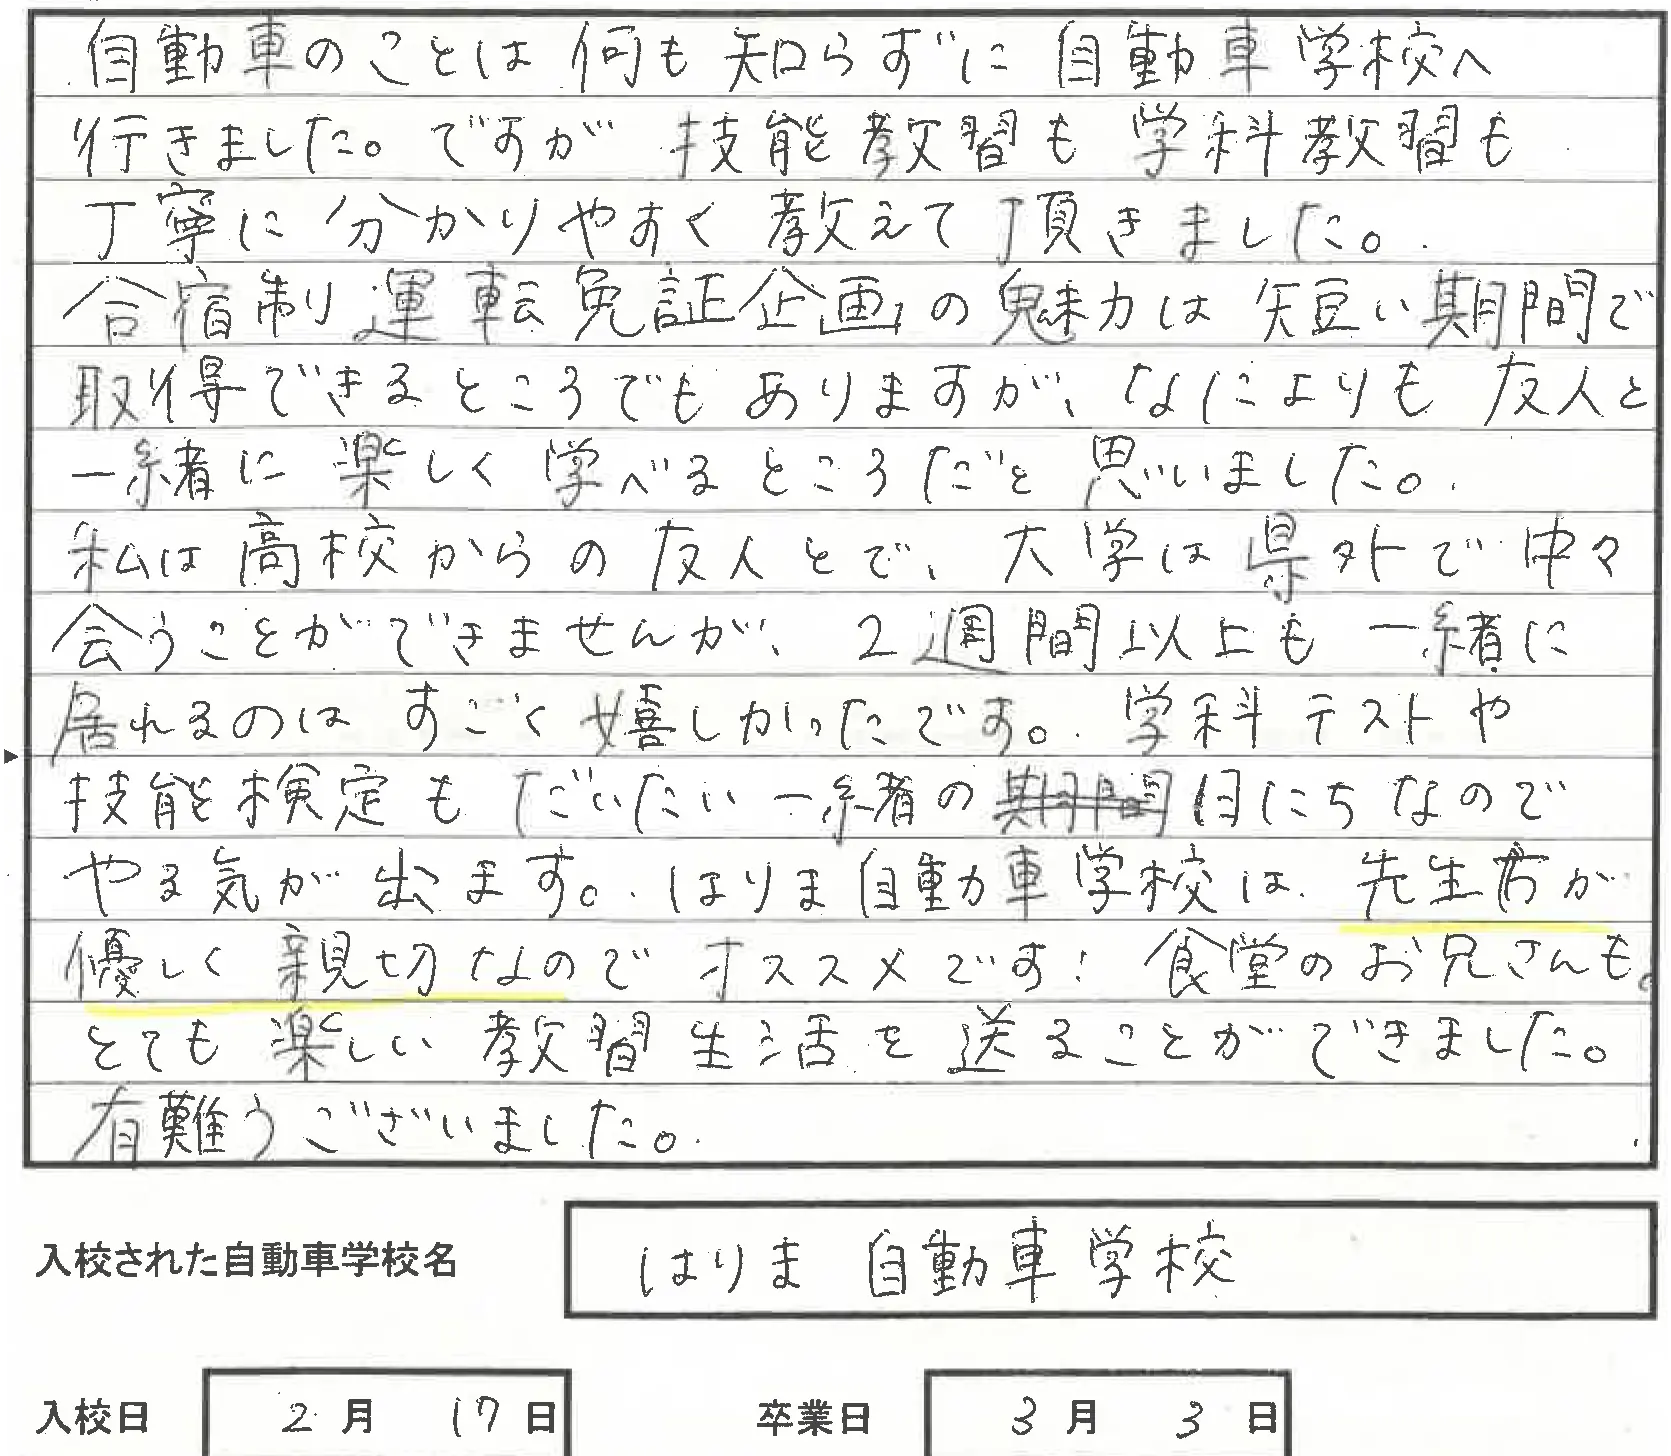 自動車のことは何も知らずに自動車学校へ
行きました。ですが技能教習も学科教習も
丁寧に分かりやすく教えて頂きました。
合宿制運転免許証企画の魅力は短い期間で
取得できるところでもありますが、なによりも友人と
一緒に楽しく学べるところだと思いました。
私は高校からの友人とで、大学は県外で中々
会うことができませんが、2週間以上も一緒に
居れるのはすごく嬉しかったです。学科テストや
技能検定もだいたい一緒の期間日にちなので
やる気が出ます。はりま自動車学校は先生方が
優しく親切なのでオススメです!食堂のお兄さんも。
とても楽しい教習生活を送ることができました。
有難うございました。
入校された自動車学校名 はりま自動車学校
入校日 2月17日 卒業日 3月3日